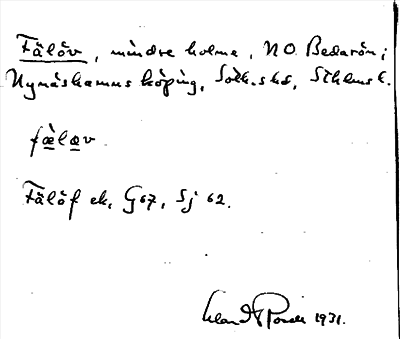 Fälöv, mindre holme, NO Bedarön;
Nynäshamns köping, Sotk. skd, Sthlms l.
fæ̀lǝv
Fälöf ek, G67, Sj 62.
1931.